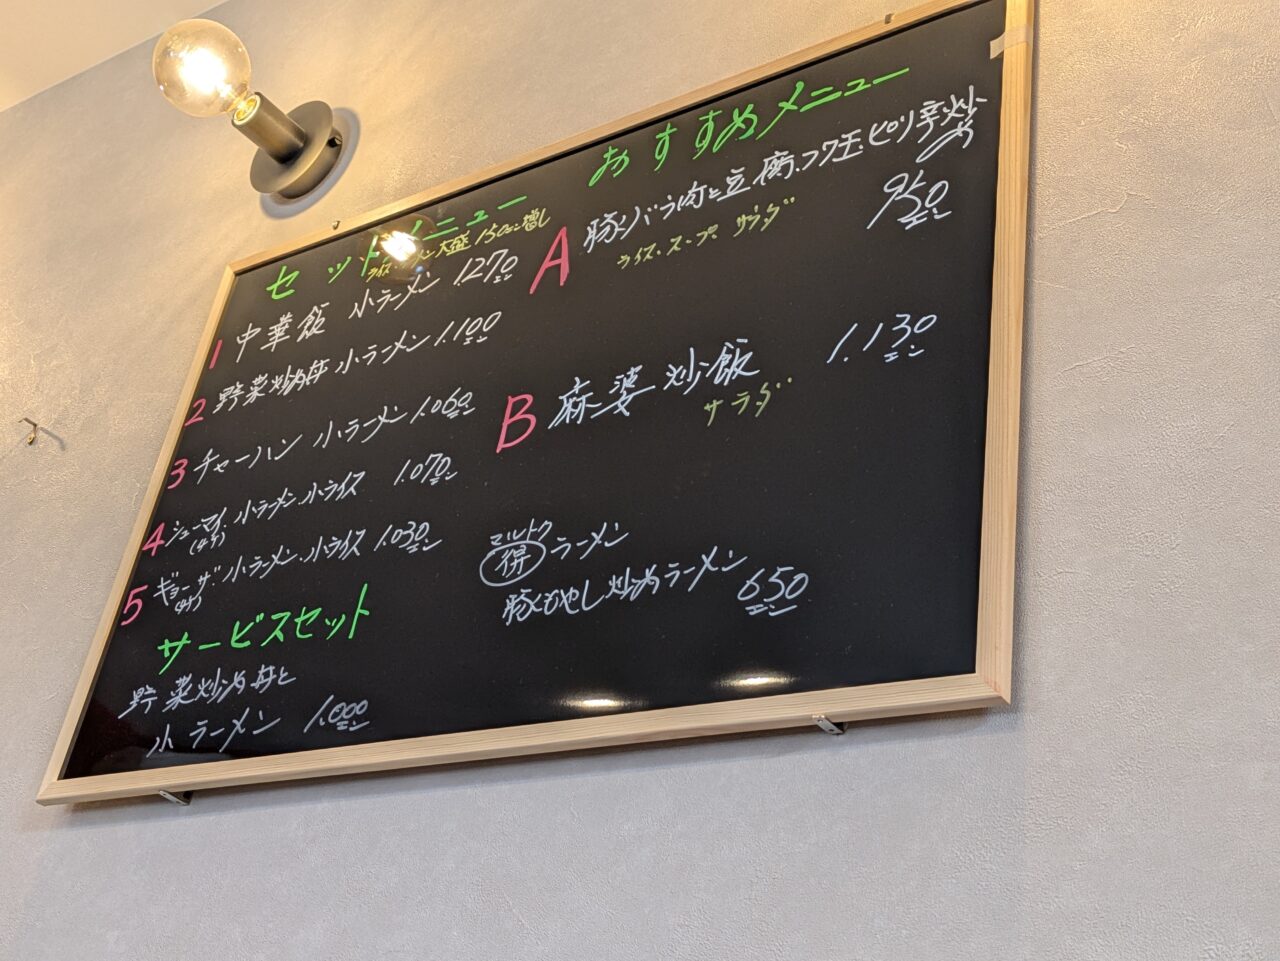 セットメニュー
ライス・ラーメン大盛 150円増し
1 中華飯 小ラーメン 1.270エン
2 野菜炒め丼 小ラーメン 1.100エン
3 チャーハン 小ラーメン 1.060エン
4 シューマイ(4ケ) 小ラーメン.小ライス 1.070エン
5 ギョーザ(4ケ) 小ラーメン.小ライス 1.030エン
サービスセット
野菜炒め丼と
小ラーメン 1.000エン
おすすめメニュー
A 豚バラ肉と豆腐.フワ玉.ピリ辛炒め
ライス・スープ サラダ
950エン
B 麻婆炒飯 1.130エン
サラダ
マルトク
得 ラーメン
豚もやし炒めラーメン 650エン